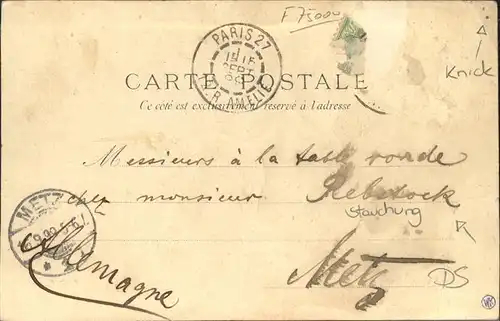 F 75000
PARIS 27
1
15 15
SEPT
99
R. AMELIE
Knick
CARTE POSTALE
Ce côté est exclusivement réservé à l'adresse
Messieurs à la table ronde
chez monsieur Rebstock
Stauchung
METZ
Allemagne
Metz
DS